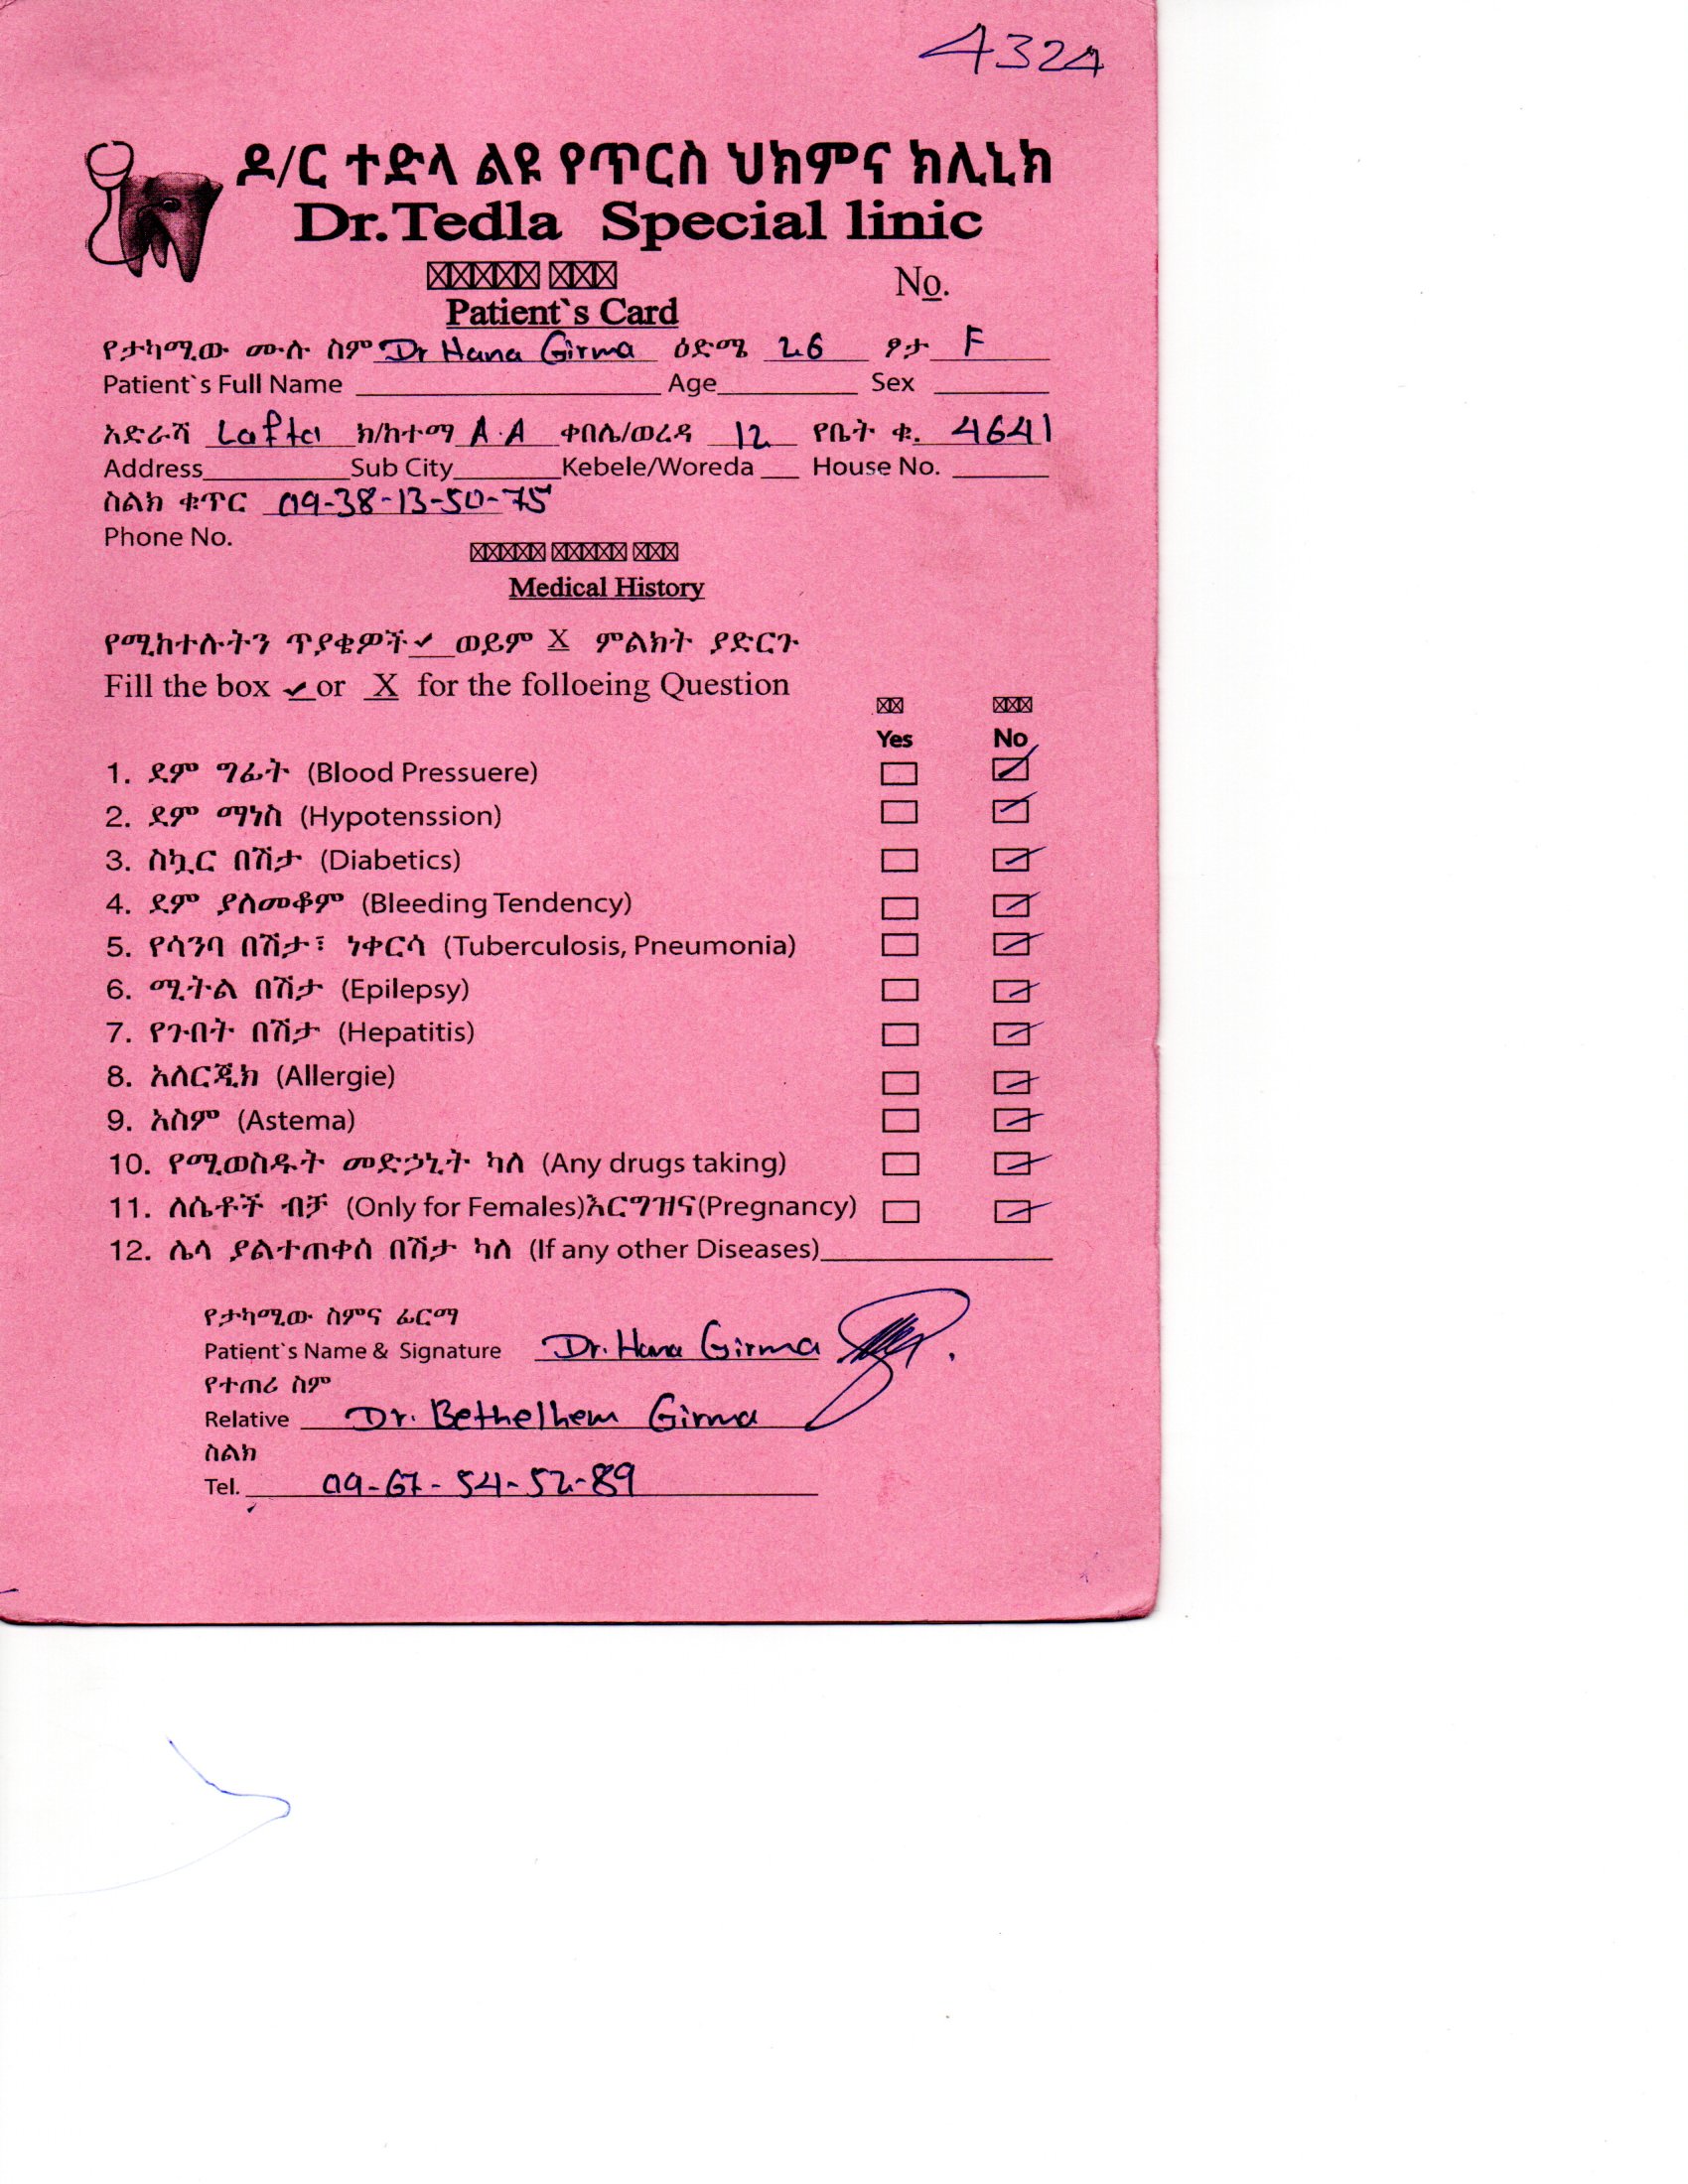 4324
ዶ/ር ተድላ ልዩ የጥርስ ህክምና ክሊኒክ
Dr.Tedla Special linic
No.
Patient`s Card
የታካሚው ሙሉ ስም Dr Hana Girma ዕድሜ 26 ፆታ F
Patient`s Full Name Age Sex
አድራሻ Lafta ክ/ከተማ A.A ቀበሌ/ወረዳ 12 የቤት ቁ. 4641
Address Sub City Kebele/Woreda House No.
ስልክ ቁጥር 09-38-13-50-75
Phone No.
Medical History
የሚከተሉትን ጥያቄዎች ✔ ወይም X ምልክት ያድርጉ
Fill the box ✔ or X for the folloeing Question
Yes No
1. ደም ግፊት (Blood Pressuere) ☐ ☑
2. ደም ማነስ (Hypotenssion) ☐ ☑
3. ስኳር በሽታ (Diabetics) ☐ ☑
4. ደም ያለመቆም (Bleeding Tendency) ☐ ☑
5. የሳንባ በሽታ፣ ነቀርሳ (Tuberculosis, Pneumonia) ☐ ☑
6. ሚትል በሽታ (Epilepsy) ☐ ☑
7. የጉበት በሽታ (Hepatitis) ☐ ☑
8. አለርጂክ (Allergie) ☐ ☑
9. አስም (Astema) ☐ ☑
10. የሚወስዱት መድኃኒት ካለ (Any drugs taking) ☐ ☑
11. ለሴቶች ብቻ (Only for Females)እርግዝና(Pregnancy) ☐ ☑
12. ሌላ ያልተጠቀሰ በሽታ ካለ (If any other Diseases)
የታካሚው ስምና ፊርማ
Patient`s Name & Signature Dr. Hana Girma
የተጠሪ ስም
Relative Dr. Bethelhem Girma
ስልክ
Tel. 09-67-54-52-89